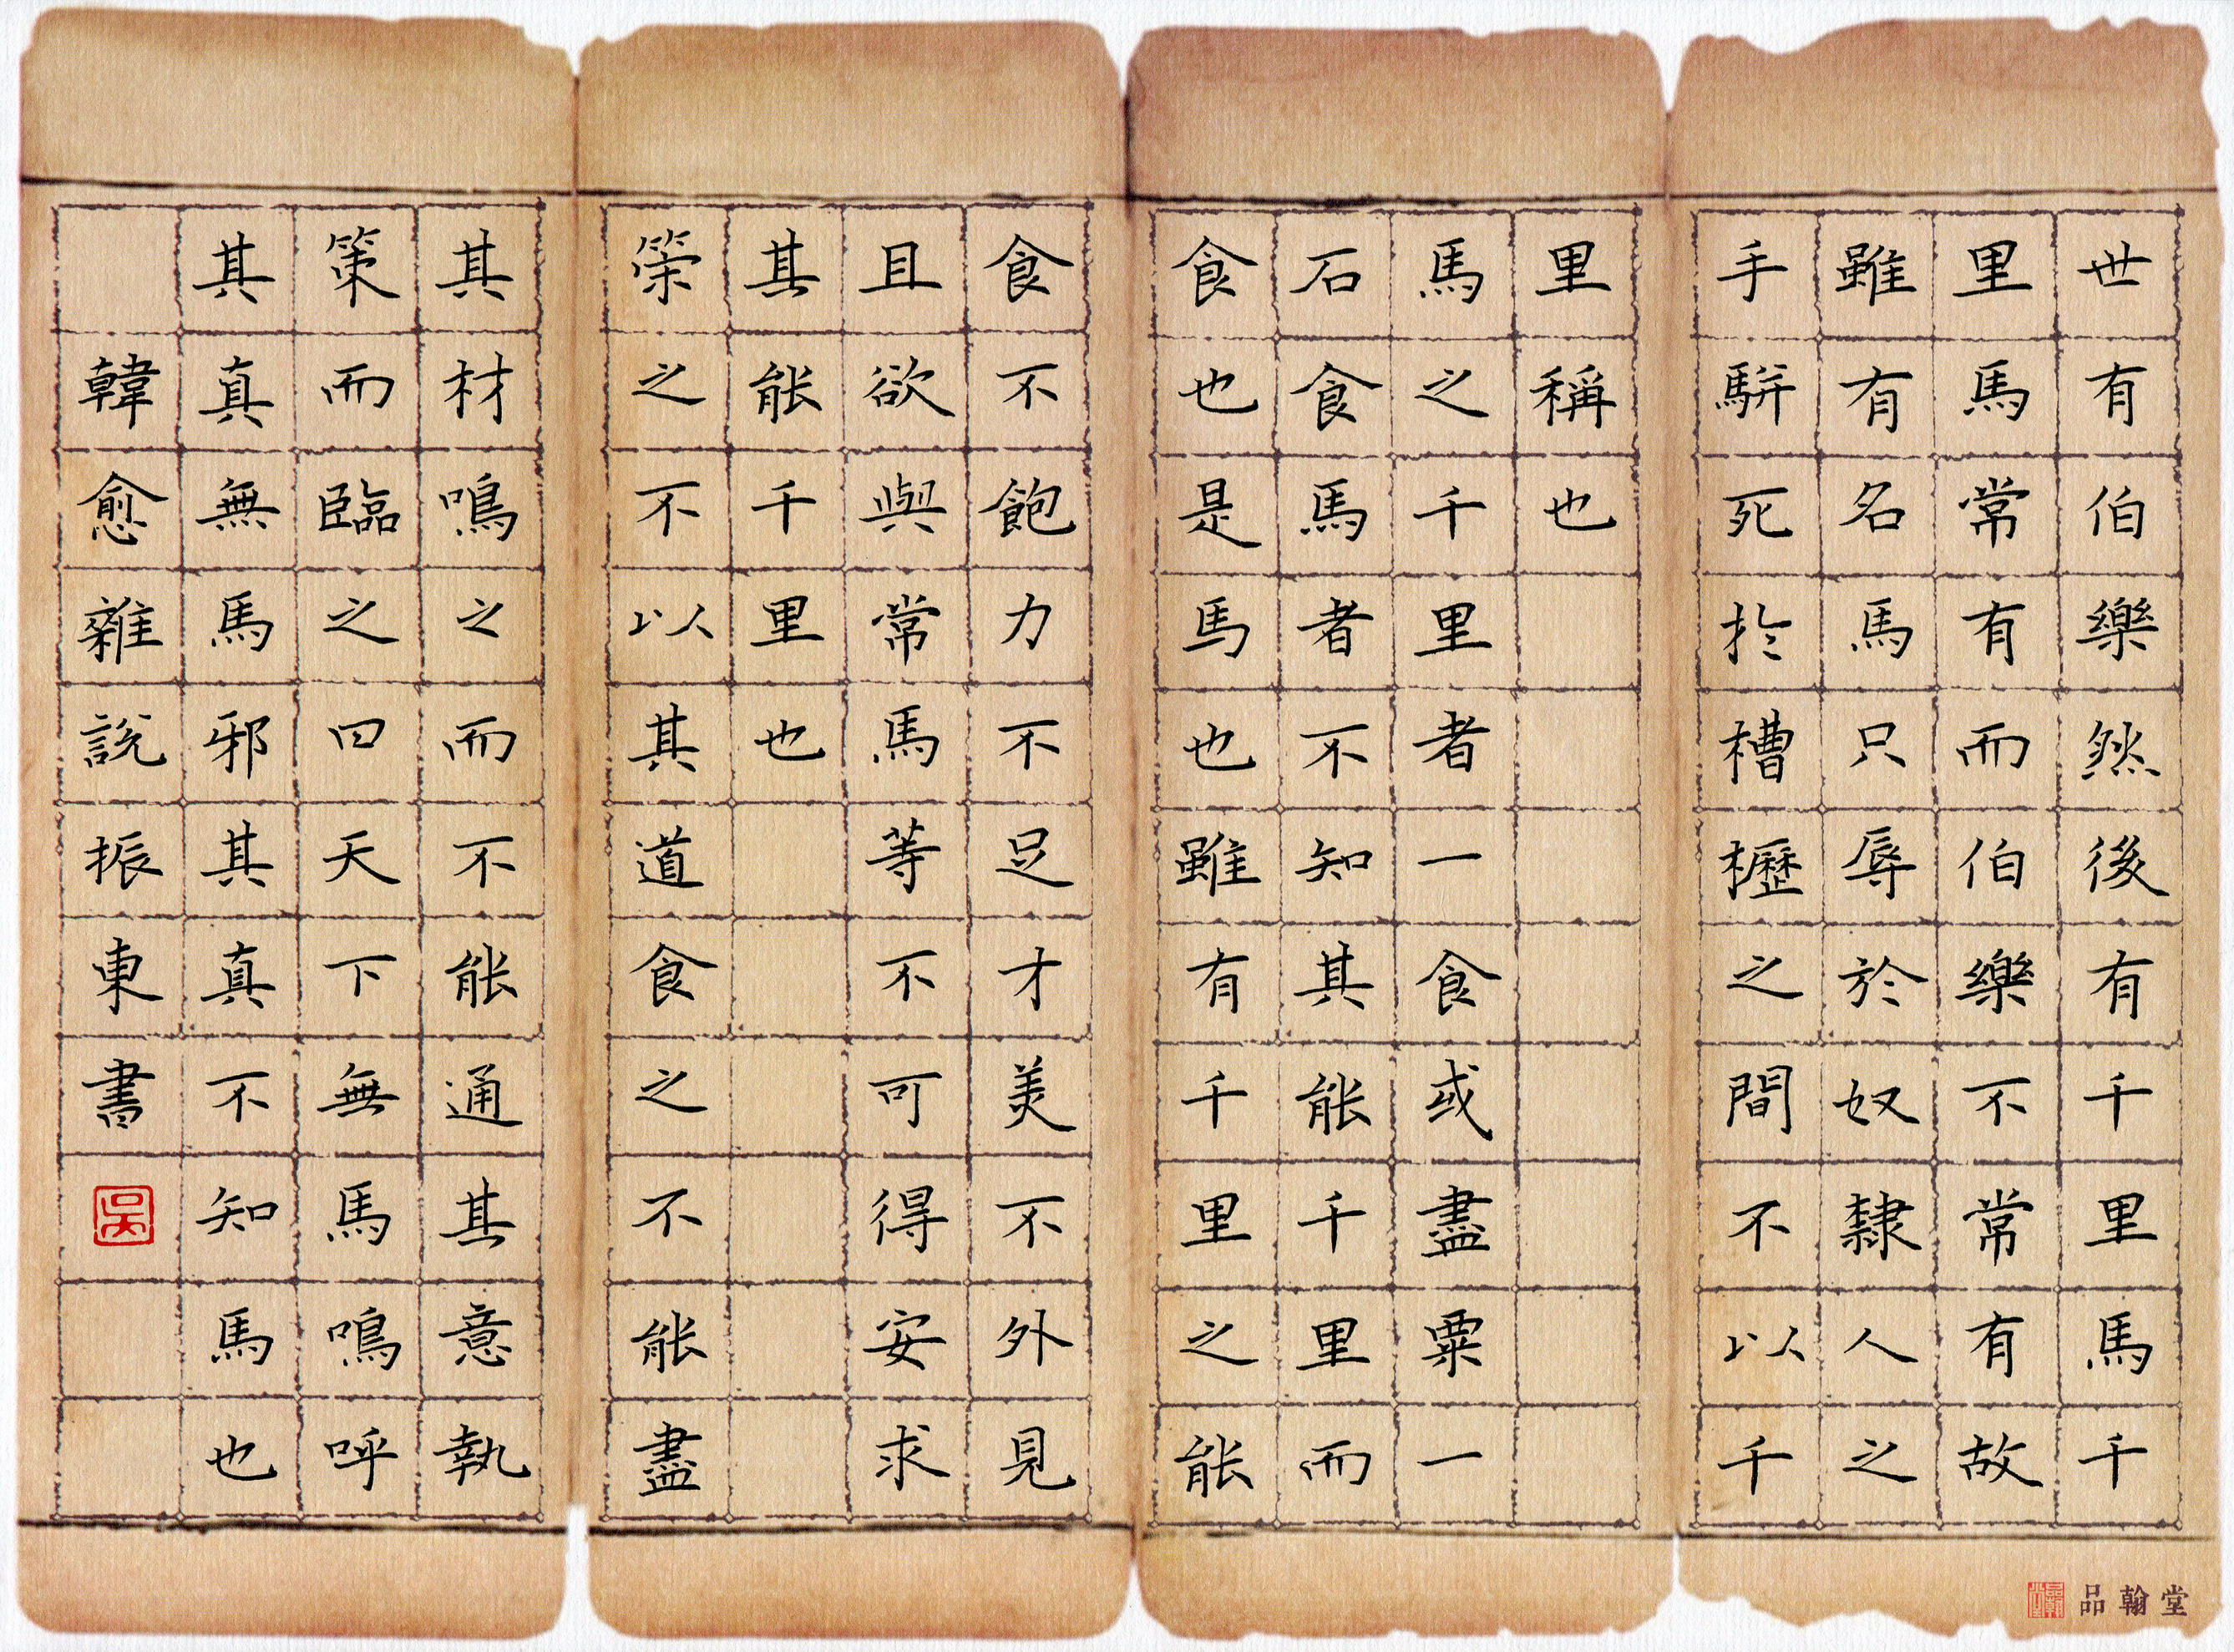 世有伯樂然後有千里馬千
里馬常有而伯樂不常有故
雖有名馬只辱於奴隸人之
手駢死於槽櫪之間不以千
里稱也
馬之千里者一食或盡粟一
石食馬者不知其能千里而
食也是馬也雖有千里之能
食不飽力不足才美不外見
且欲與常馬等不可得安求
其能千里也
策之不以其道食之不能盡
其材鳴之而不能通其意執
策而臨之曰天下無馬嗚呼
其真無馬邪其真不知馬也
韓愈雜說振東書
吳
品翰堂